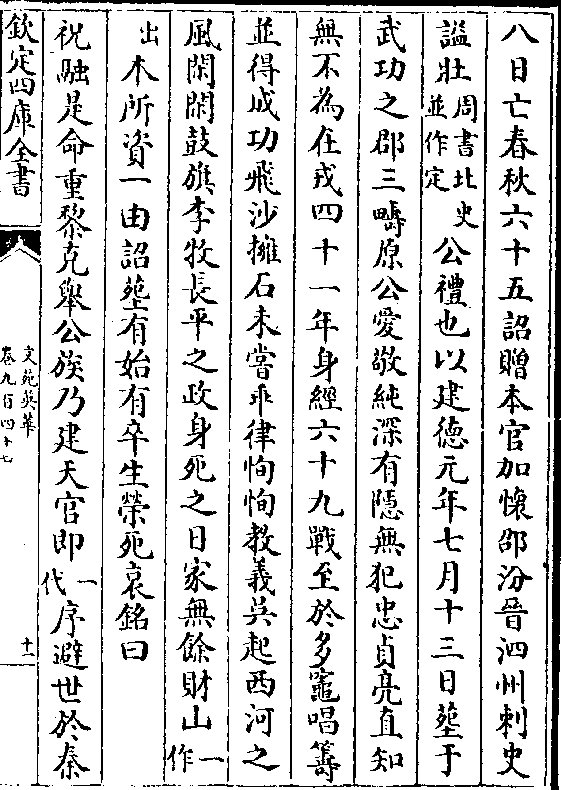 八日亡春秋六十五詔贈本官加懷邵汾晉泗州刺史
謚壯周書北史並作定公禮也以建德元年七月十三日塟于
武功之郡三疇原公愛敬純深有隱無犯忠貞亮直知
無不為在戎四十一年身經六十九戰至於多竈唱籌
並得成功飛沙擁石未嘗乖律恂恂教義吳起西河之
風閑閑鼓旗李牧長平之政身死之日家無餘財山一作
出木所資一由詔塟有始有卒生榮死哀銘曰
祝融是命重黎克舉公族乃建天官即一代序避世於秦
欽定四庫全書
文苑英華
卷九百四十七
十二